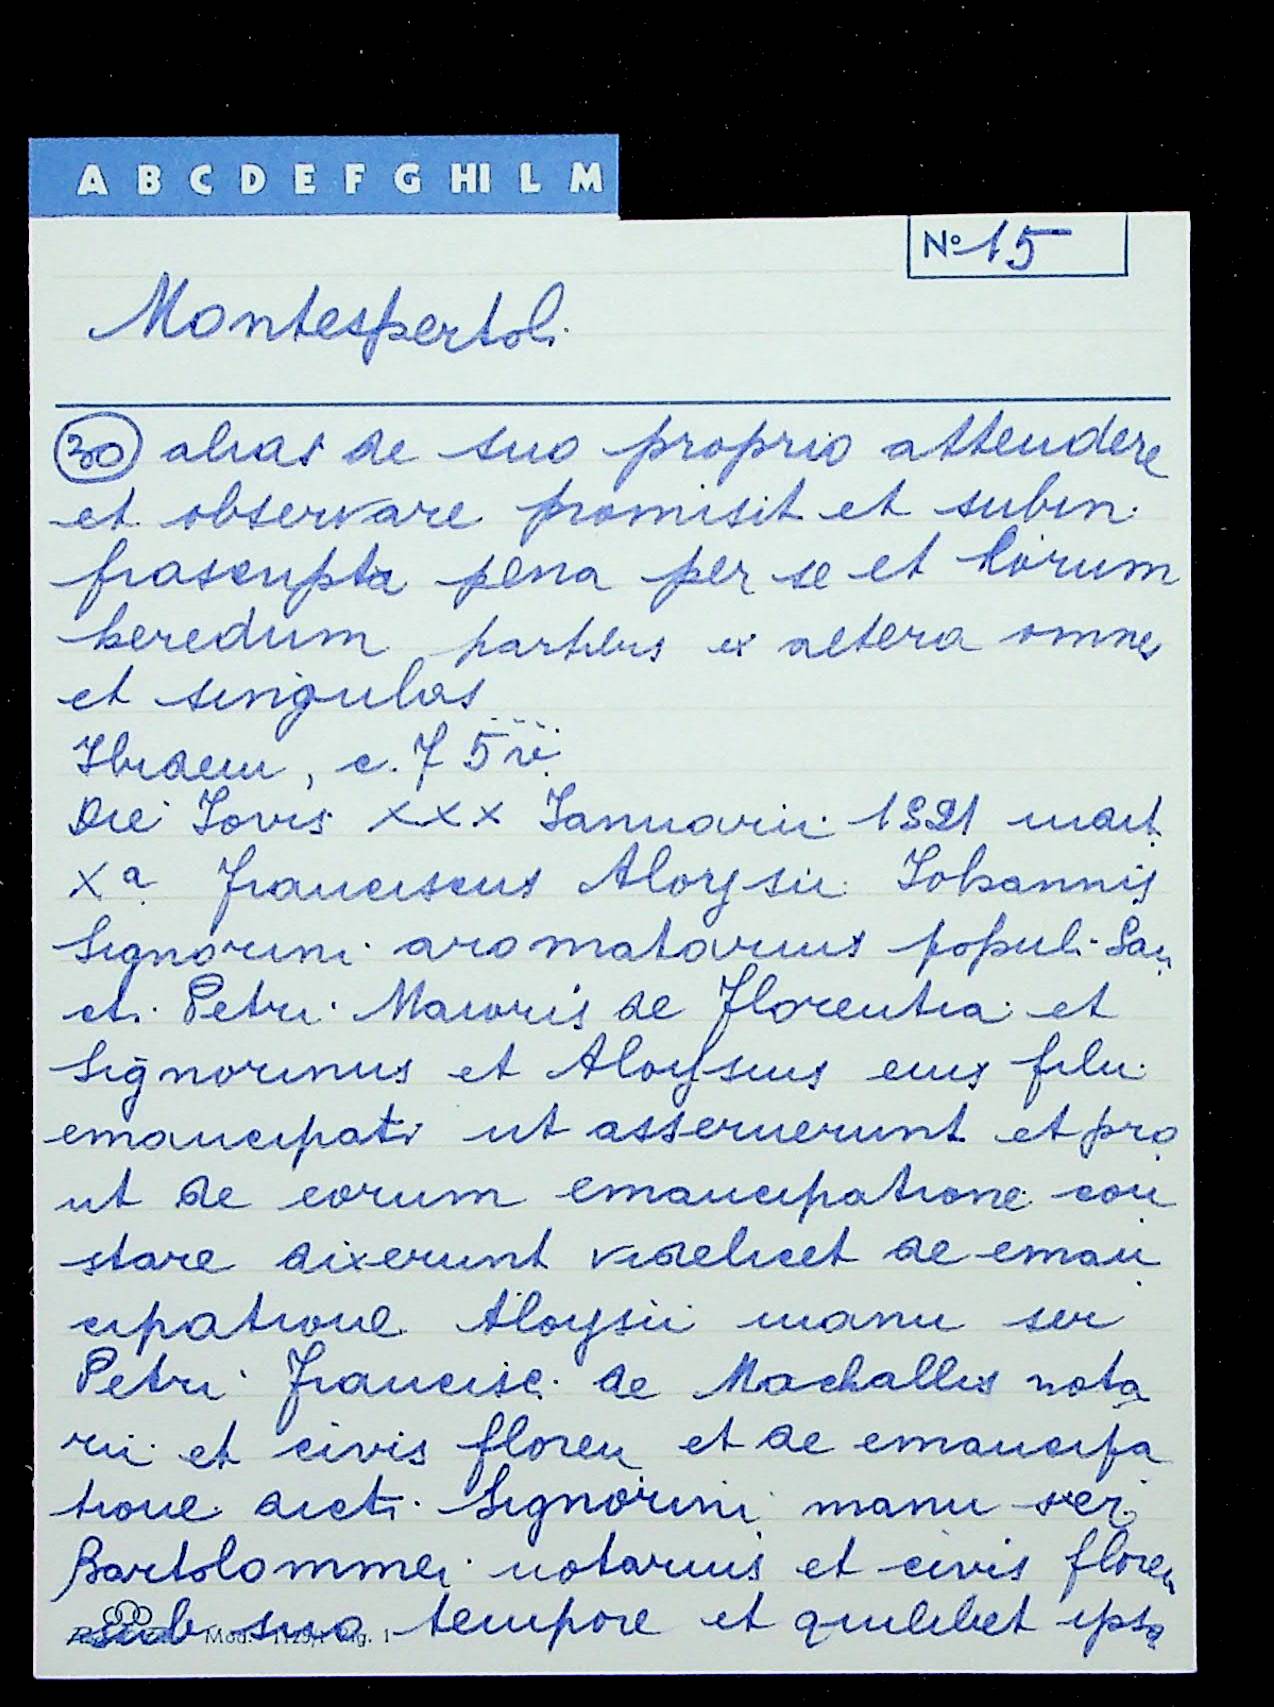 A B C D E F G HI L M
Nº 15
Montespertoli
30 alias de suo proprio attendere
et observare promisit et subin
frascripta pena per se et lorum
heredum partibus ex altera omnes
et singulas
Ibidem, c. 75 v.
Die Iovis XXX Ianuarii 1521 ind.
Xª Franciscus Aloysii Iohannis
Signorini aromatarius populi San
cti Petri Maioris de Florentia et
Signorinus et Aloysius eius filii
emancipati ut asseruerunt et pro
ut de eorum emancipatione con
stare dixerunt videlicet de eman
cipatione Aloysii manu ser
Petri Francisc. de Machallis nota
rii et civis floren et de emancipa
tione dicti Signorini manu ser
Bartolommei notarius et civis floren
sub suo tempore et quilibet ipso
Mod. 1